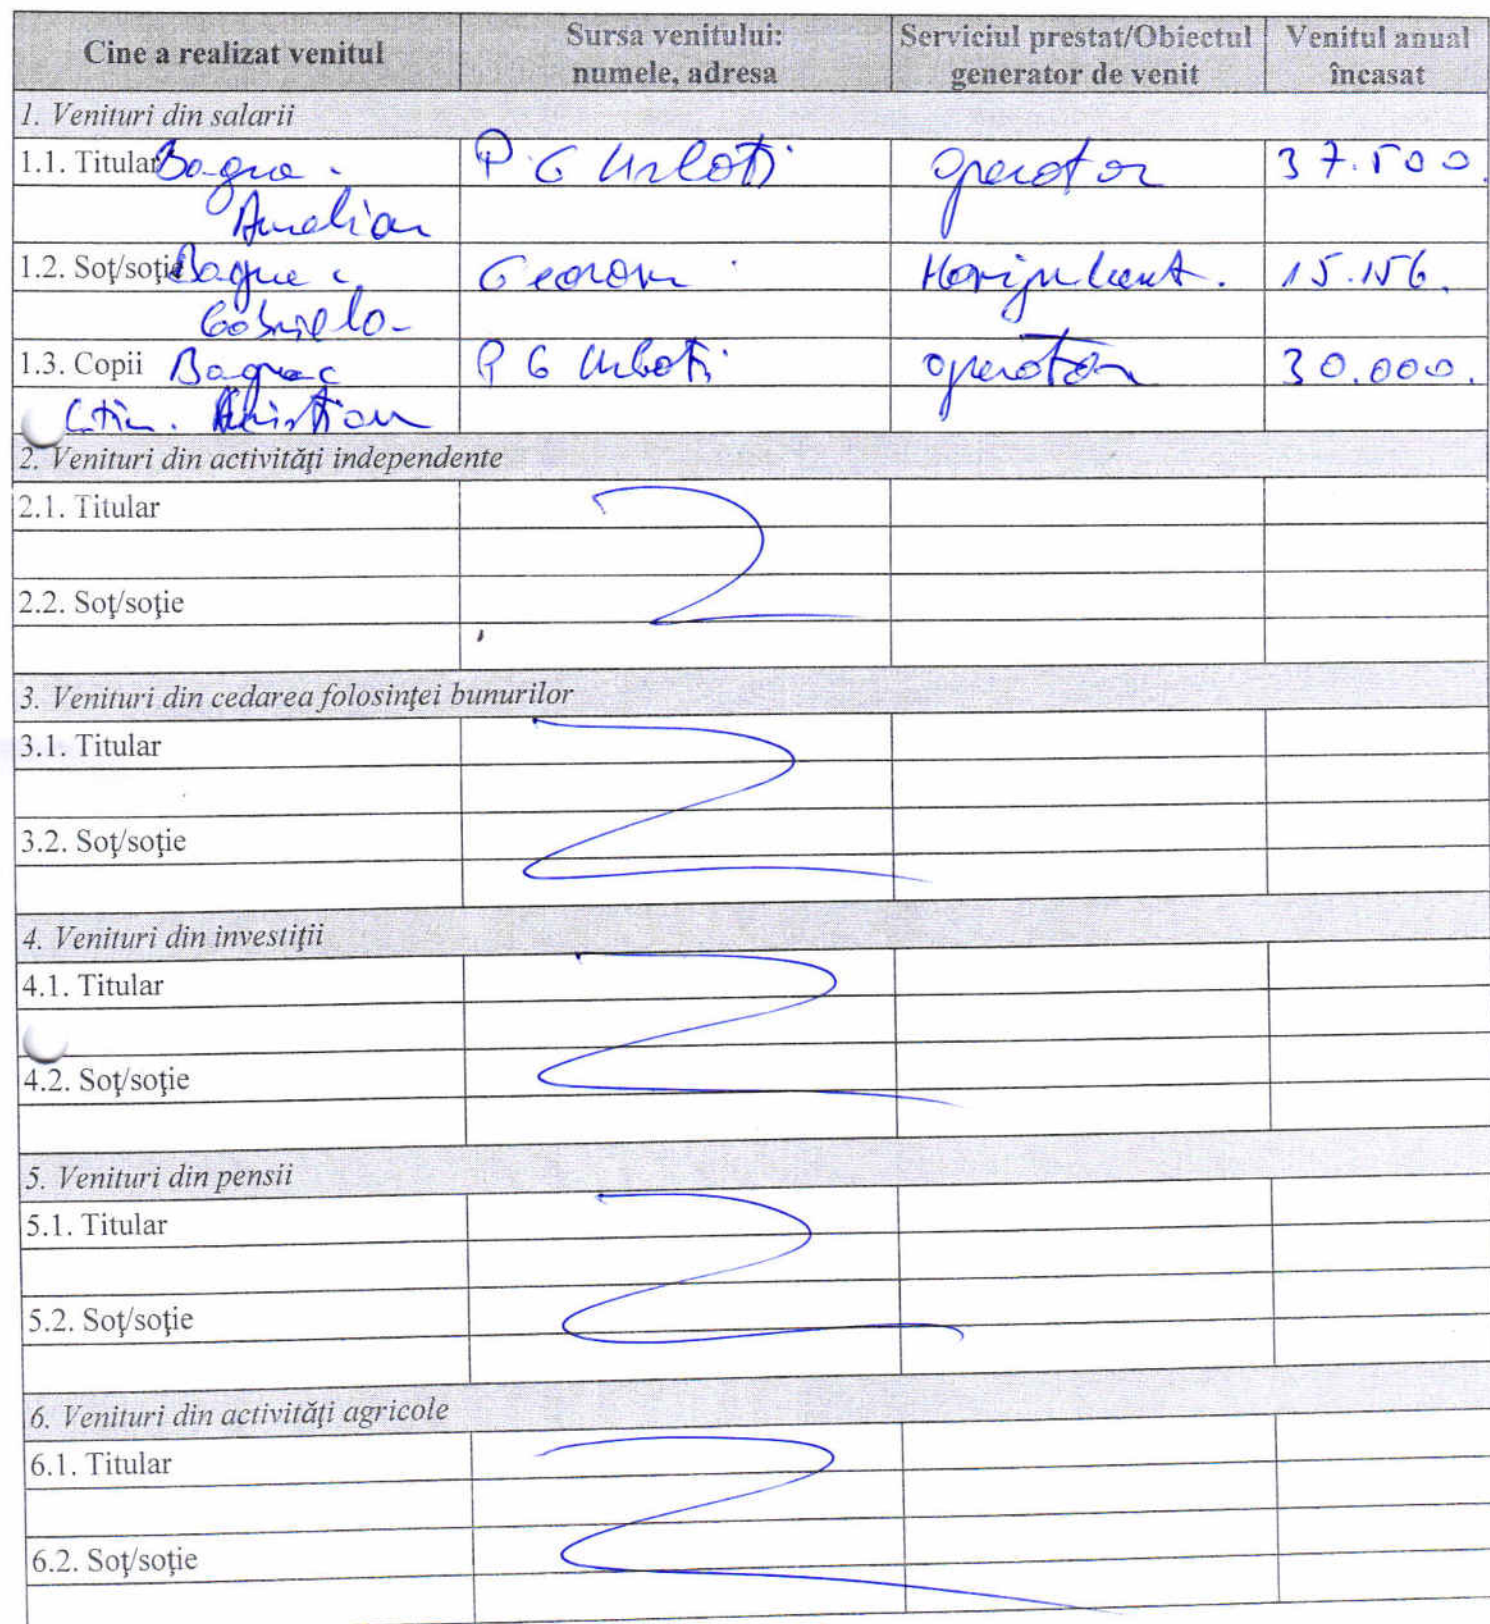 Cine a realizat venitul
Sursa venitului:
numele, adresa
Serviciul prestat/Obiectul
generator de venit
Venitul anual
încasat
1. Venituri din salarii
1.1. Titular P G Urlați operator 37.500.
Aurelian
1.2. Soţ/soţie 15.156.
Gabriela
1.3. Copii P G Urlați operator 30.000.
2. Venituri din activităţi independente
2.1. Titular
2.2. Soţ/soţie
3. Venituri din cedarea folosinţei bunurilor
3.1. Titular
3.2. Soţ/soţie
4. Venituri din investiţii
4.1. Titular
4.2. Soţ/soţie
5. Venituri din pensii
5.1. Titular
5.2. Soţ/soţie
6. Venituri din activităţi agricole
6.1. Titular
6.2. Soţ/soţie